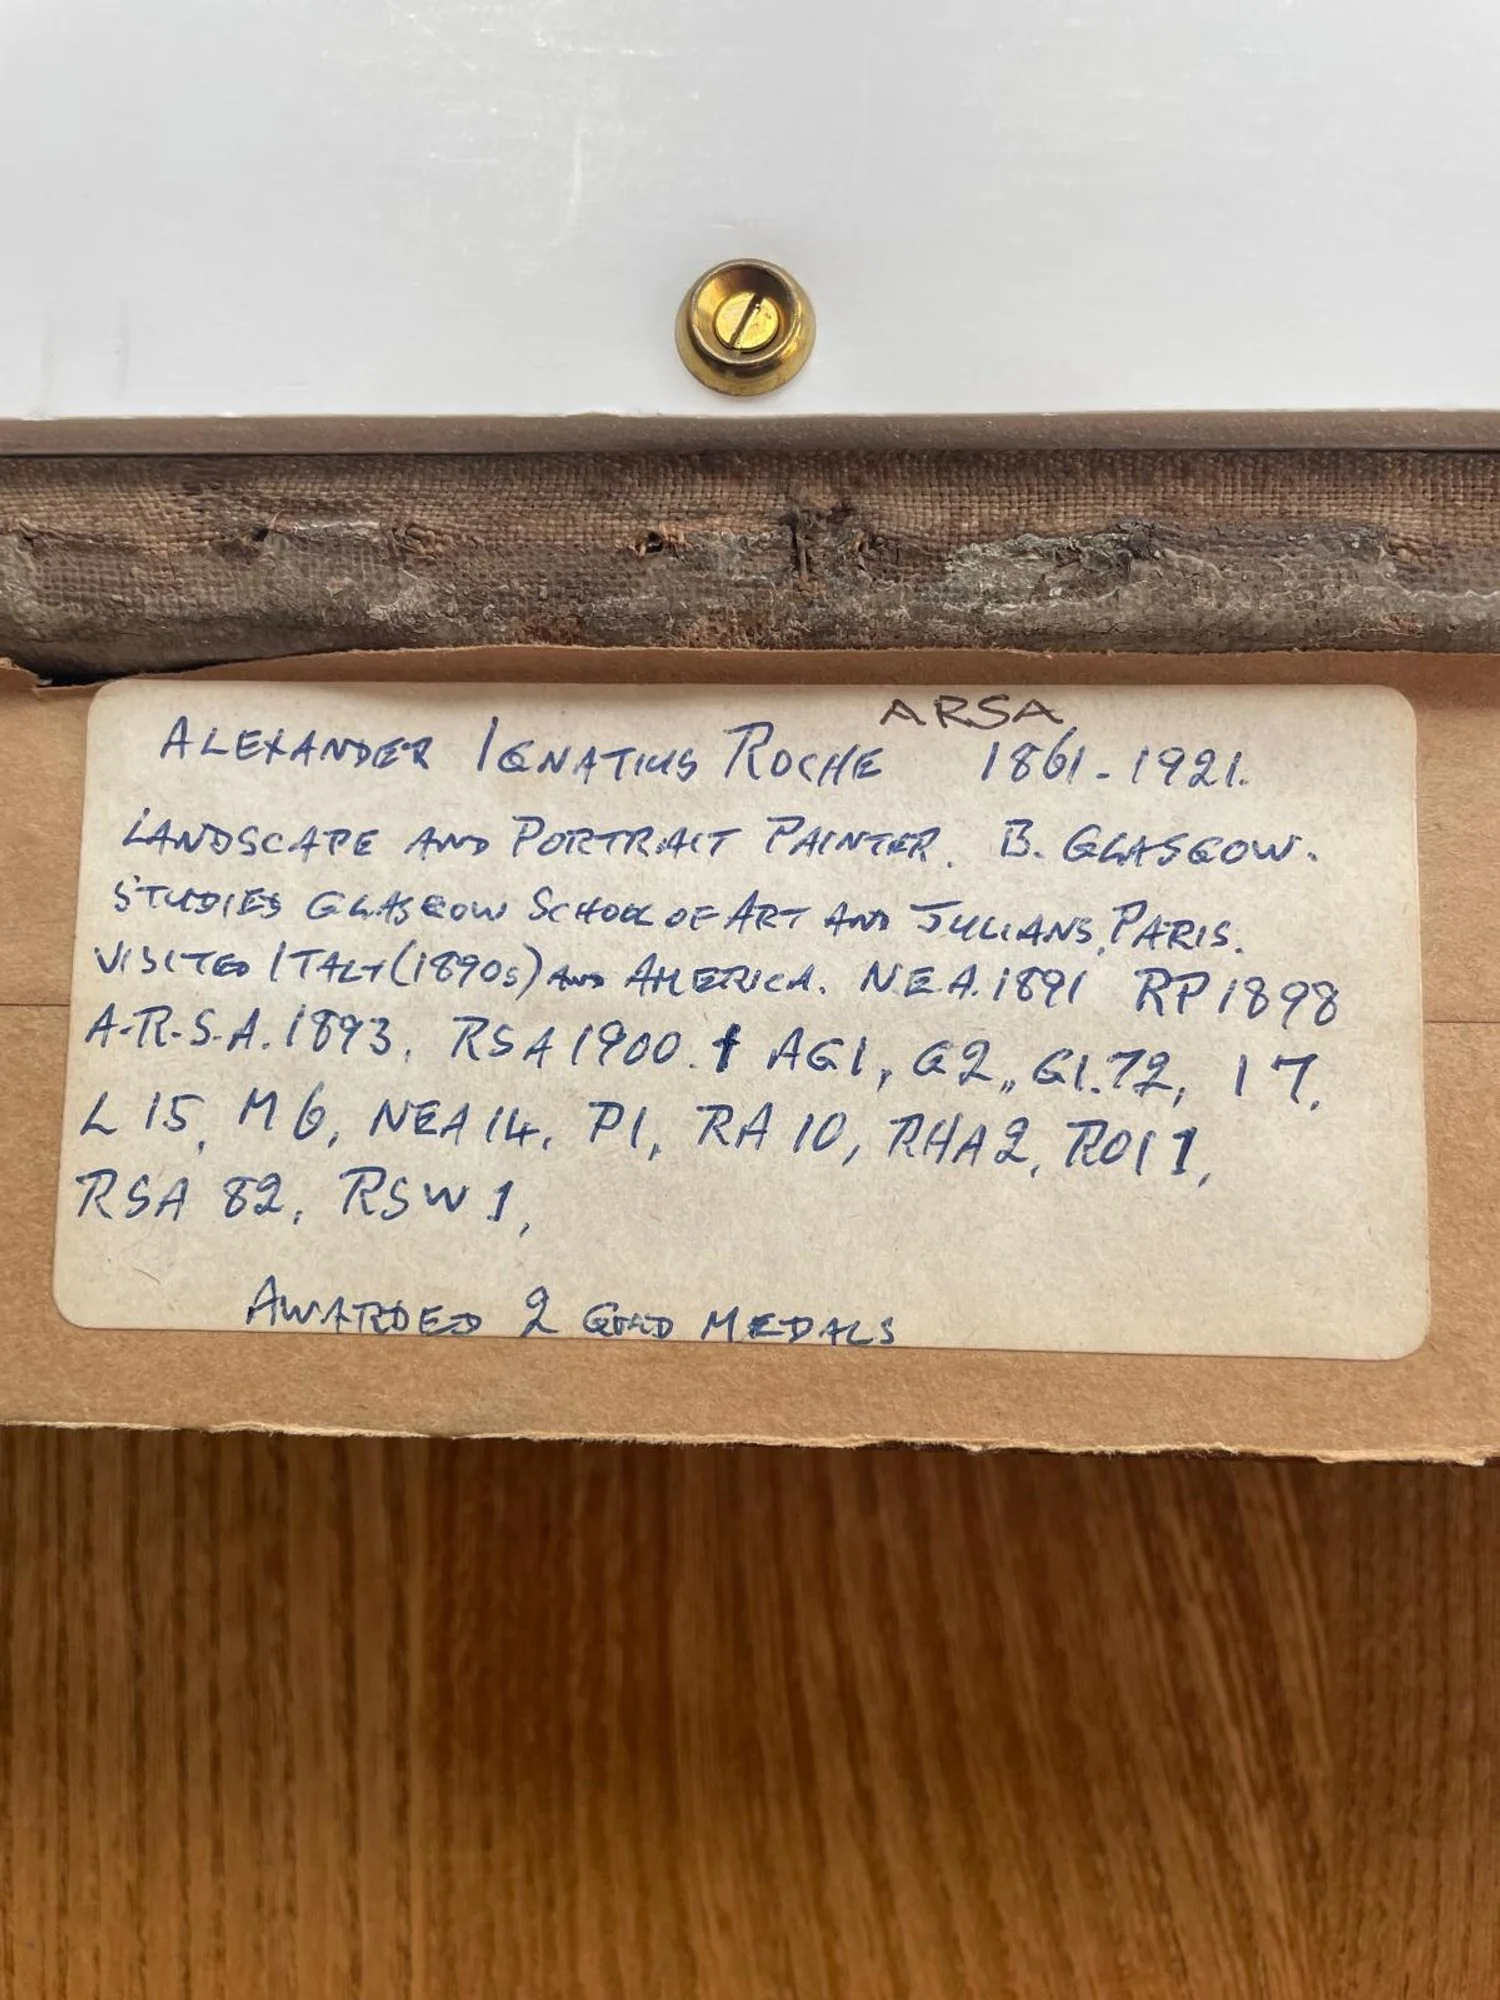 ARSA
ALEXANDER IGNATIUS ROCHE 1861-1921.
LANDSCAPE AND PORTRAIT PAINTER. B. GLASGOW.
STUDIES GLASGOW SCHOOL OF ART AND JULIANS, PARIS.
VISITED ITALY (1890s) AND AMERICA. N.E.A. 1891 RP 1898
A.R.S.A. 1893, RSA 1900. † AG1, G2,, GI.72, I7,
L 15, M 6, NEA 14, P1, RA 10, RHA 2, ROI 1,
RSA 82, RSW 1,
AWARDED 2 GOLD MEDALS